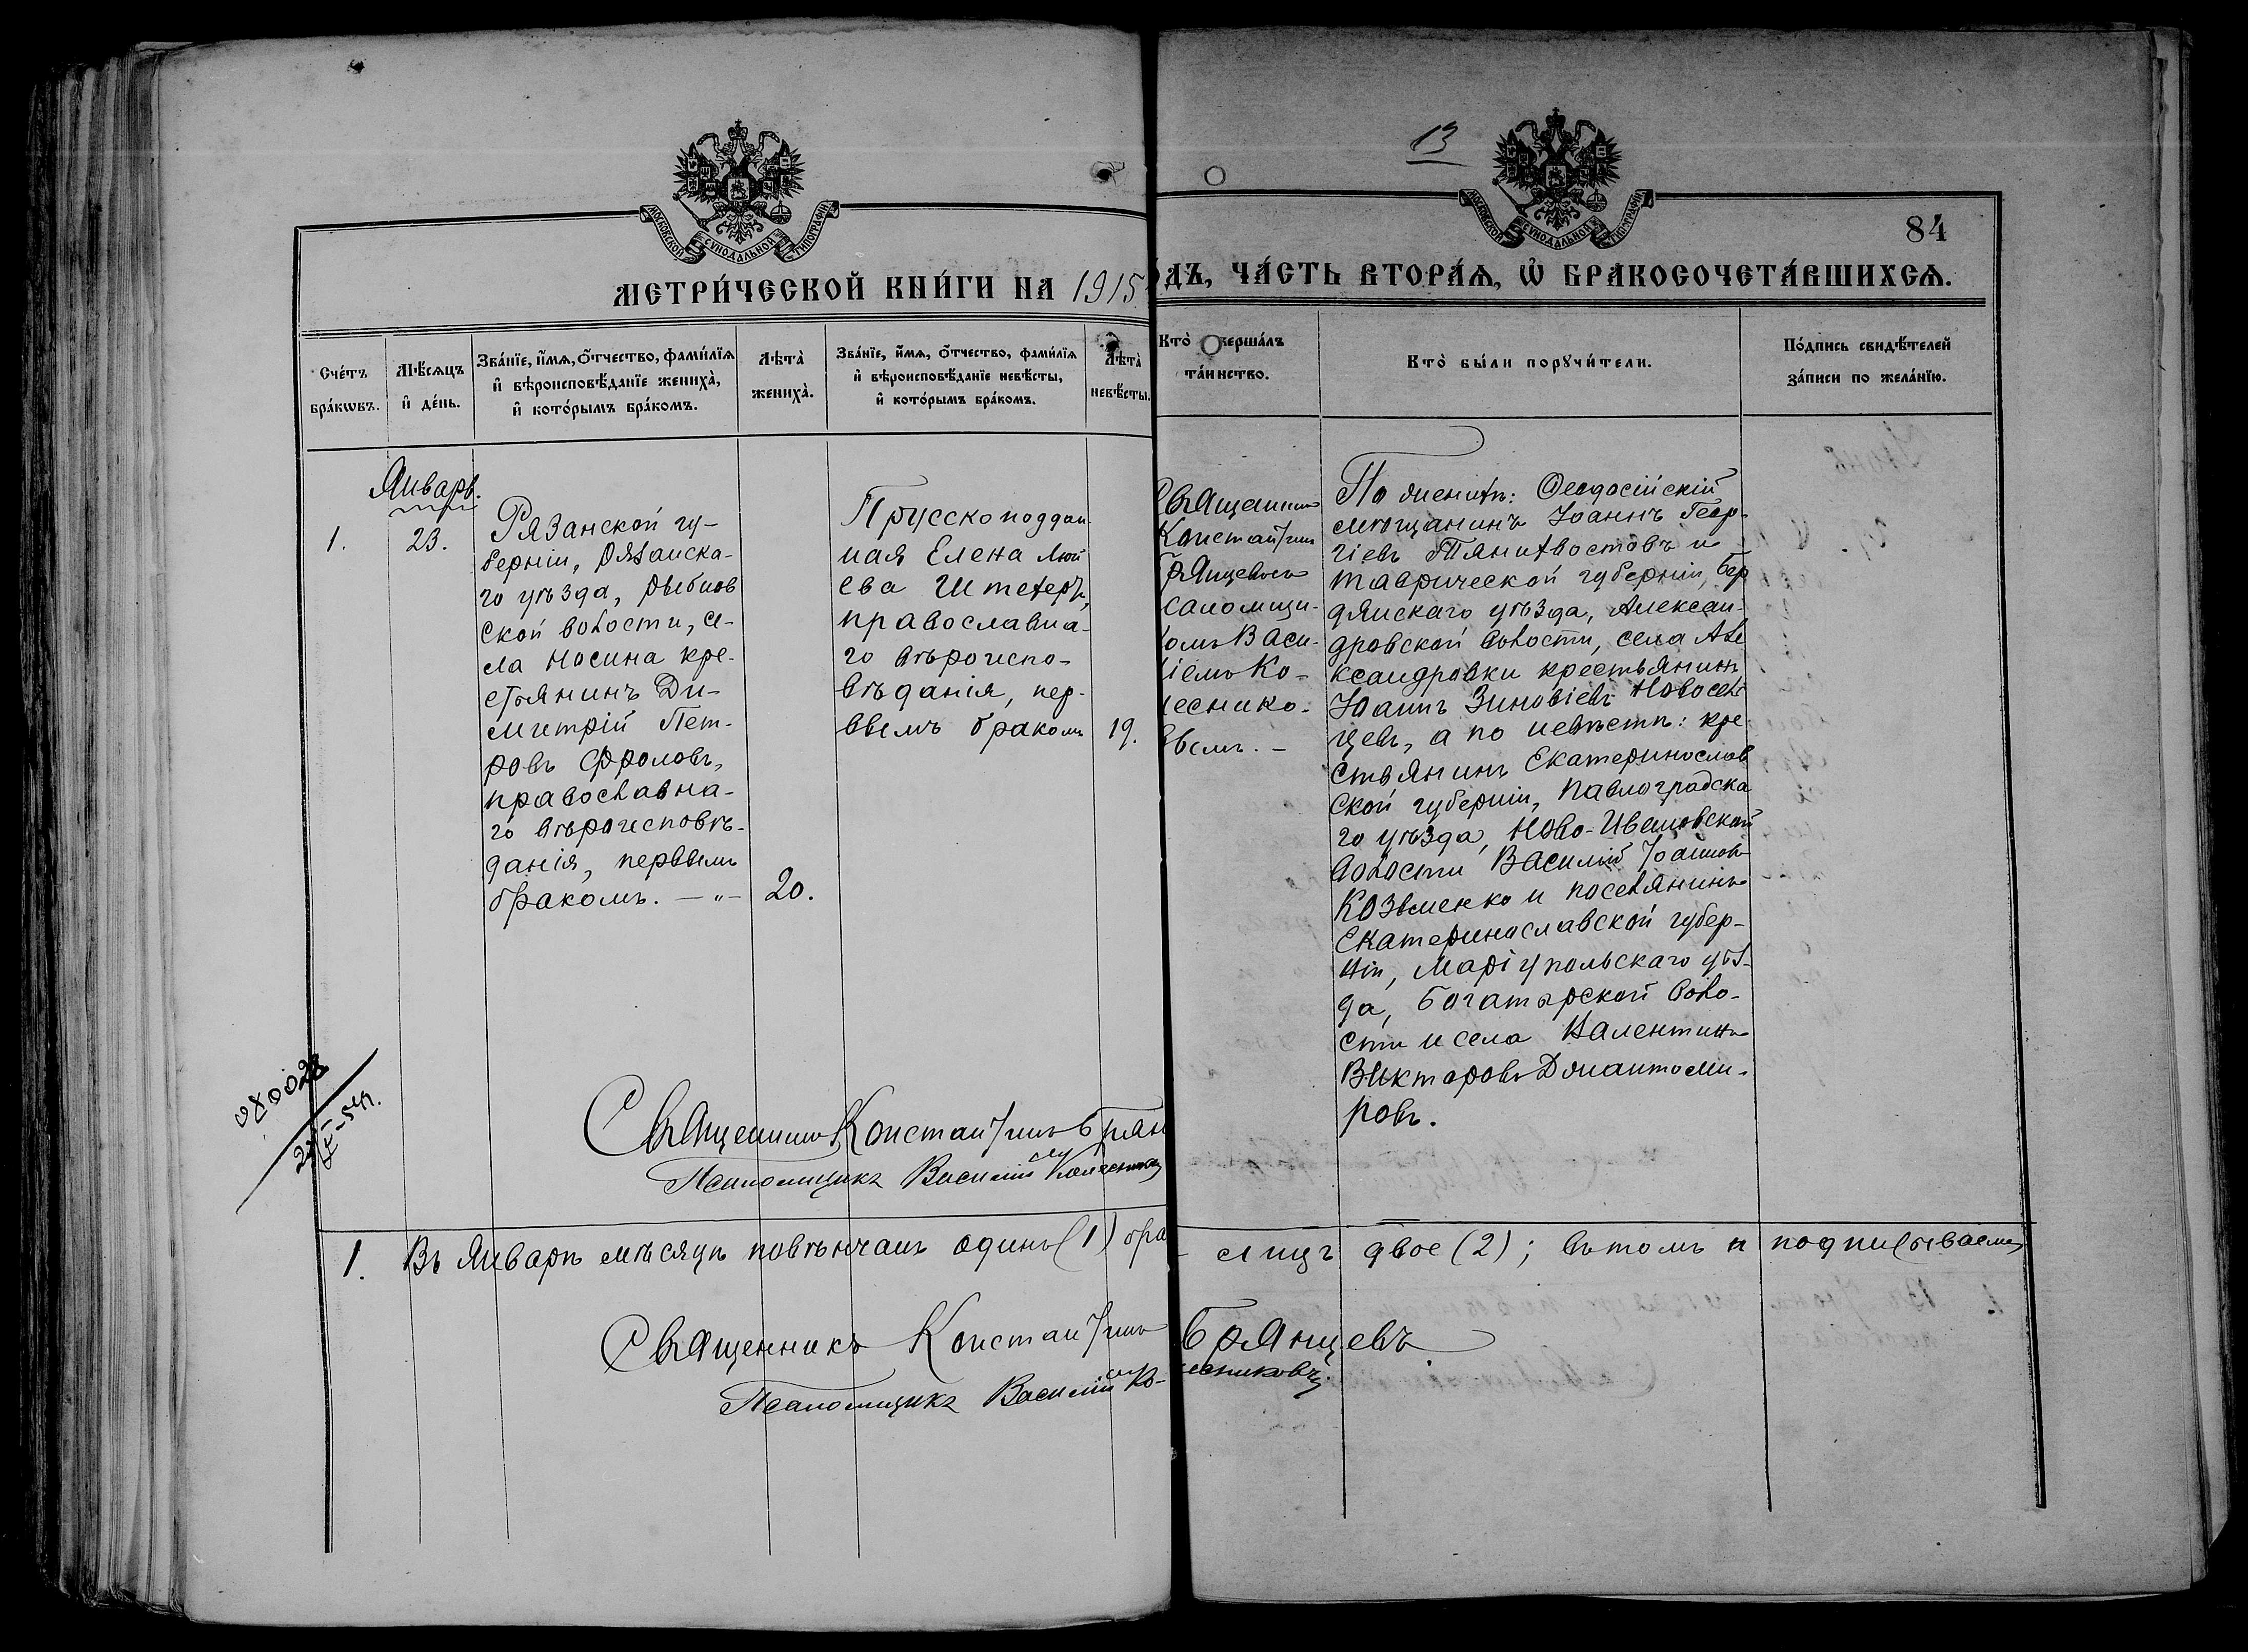 13
84
МОСКОВСКОЙ СѴНОДАЛЬНОЙ ТИПОГРАФІИ
МОСКОВСКОЙ СѴНОДАЛЬНОЙ ТИПОГРАФІИ
МЕТРИ́ЧЕСКОЙ КНИ́ГИ НА 1915
ДЪ, ЧА́СТЬ ВТОРА́Ѧ, Ѡ҆ БРАКОСОЧЕТА́ВШИХСѦ.
Сче́тъ
бра́кѡвъ.
Мѣ́сѧцъ
и҆ де́нь.
Зва́нїе, и҆́мѧ, ѻ҆́тчество, фами́лїѧ
и҆ вѣроисповѣ́данїе жениха̀,
и҆ кото́рымъ бра́комъ.
Лѣта̀
жениха̀.
Зва́нїе, и҆́мѧ, ѻ҆́тчество, фами́лїѧ
и҆ вѣроисповѣ́данїе невѣ́сты,
и҆ кото́рымъ бра́комъ.
Лѣта̀
невѣ́сты.
Кто̀ вершáлъ
та́инство.
Кто̀ бы́ли порꙋчи́тели.
По́дпись свидѣ́телей
за́писи по жела́нїю.
Январь.
1.
23.
Рязанской гу-
берніи, Рязанска-
го уѣзда, Рыбнов
ской волости, се-
ла Носина кре-
стьянинъ Ди-
митрій Пет-
ровъ Фроловъ,
православна-
го вѣроисповѣ-
данія, первымъ
бракомъ. — „ —
20.
Прусско поддан-
ная Елена
ева Штехеръ,
православна-
го вѣроиспо-
вѣданія, пер-
вымъ бракомъ
19.
Священник
Константин
Брянцевъ
саломщи-
комъ Васи-
ліемъ Ко-
леснико-
вымъ. —
По женихѣ: Ѳеодосійскій
мѣщанинъ Іоаннъ Геор-
гіевъ Тянихвостовъ и
Таврической губерніи, Бер
дянскаго уѣзда, Алексан-
дровской волости, села Але
ксандровки крестьянинъ
Іоаннъ Зиновіевъ Новосель
цевъ, а по невѣстѣ: кре-
стьянинъ Екатеринослав
ской губерніи, Павлоградска
го уѣзда, Ново-Ивановской
волости Василій Іоаннов
Козьменко и поселянинъ
Екатеринославской губер-
ніи, Маріупольскаго уѣз-
да, Богатырской воло-
сти и села Валентинъ
Викторовъ
ровъ.
Священник Константинъ Брян
Псаломщикъ Василій Колесников
1.
Въ Январѣ мѣсяцѣ повѣнчанъ одинъ (1) бра
- лицъ двое (2); въ томъ и подписываемся
Священникъ Константинъ Брянцевъ
Псаломщикъ Василій Колесниковъ